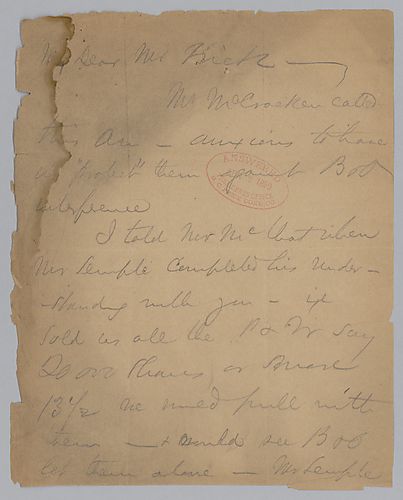 My Dear Mr Frick —
Mr McCracken called
this Am — anxious to have
us "protect" them against B&O
interference
ANSWERED
1899
H. C. FRICK COKE CO.
I told Mr Mc that when
Mr Semple Completed his under-
standing with you — ie
Sold us all the P & W say
20 000 Shares or more
13 1/2 we would pull with
them — & would see B&O
let them alone — Mr Semple